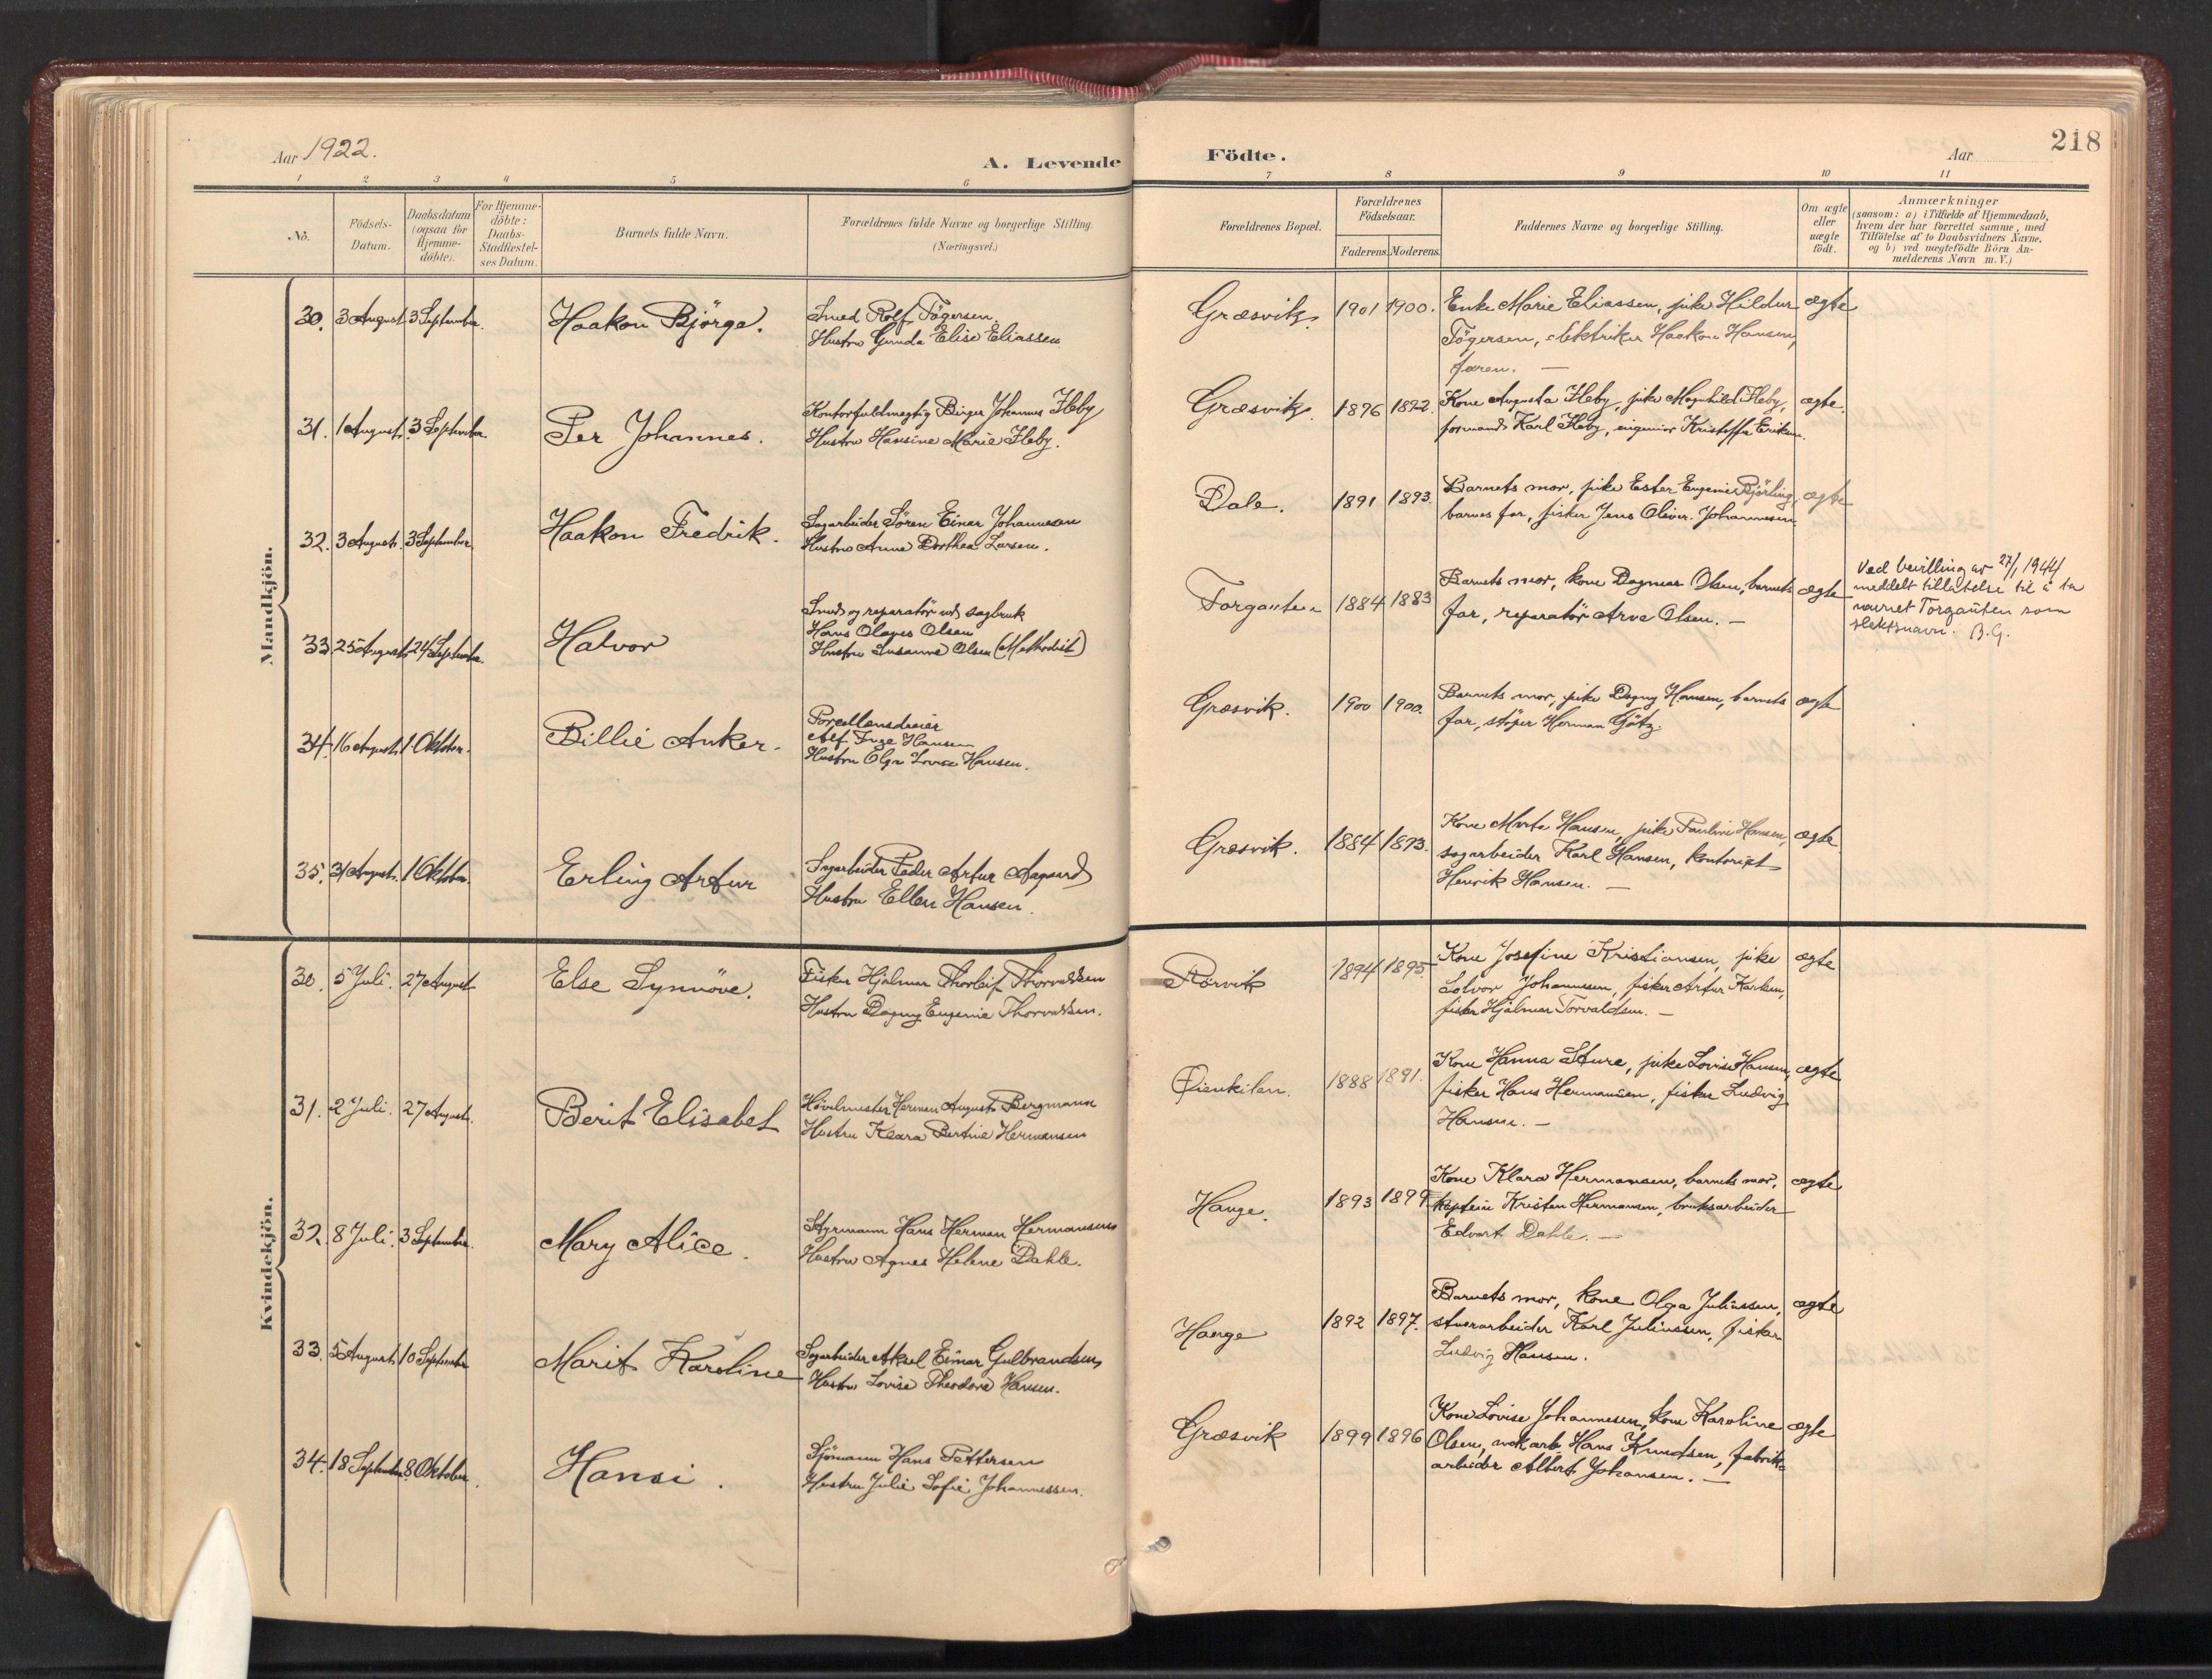 Aar 1922.
A. Levende
Födte.
Aar
218
1 2 3 4 5 6
7 8 9 10 11
No.
Födsels-
Datum.
Daabsdatum
(ogsaa for
Hjemme-
döbte).
For Hjemme-
döbte:
Daabs-
Stadfæstel-
ses Datum.
Barnets fulde Navn.
Forældrenes fulde Navne og borgerlige Stilling.
(Næringsvei.)
Forældrenes Bopæl.
Forældrenes
Födselsaar.
Faderens. Moderens.
Faddernes Navne og borgerlige Stilling.
Om ægte
eller
uægte
födt.
Anmærkninger
(saasom: a) i Tilfælde af Hjemmedaab,
hvem der har forrettet samme, med
Tilföielse af to Daabsvidners Navne,
og b) ved uægtefödte Börn An-
melderens Navn m. V.)
Mandkjön.
30. 3 August 3 September. Haakon Björge.
Smed Rolf Tögersen.
Hustru Gunda Elise Eliassen
Græsvik. 1901 1900.
Enke Marie Eliassen, pike Hildur
Tögersen, elektriker Haakon Hansen,
faren. —
ægte
31. 1 August. 3 September. Per Johannes.
Kontorfuldmægtig Birger Johannes Heby
Hustru Hansine Marie Heby.
Græsvik. 1896 1892.
Kone Augusta Heby, pike Magnhild Heby,
formand Karl Heby, Eriksen.
ægte.
32. 3 August. 3 September. Haakon Fredrik.
Sagarbeider Sören Einar Johannesen
Hustru Anna Dorthea Larsen.
Dale. 1891 1893.
Barnets mor, pike Ester Eugenie Björling,
barnes far, fisker Jens Oliver Johannesen
ægte
33. 25 August 24 September. Halvor
Smed og reparatör ved sagbruk
Hans Olaves Olsen
Hustru Susanne Olsen (Methodist)
Torgauten 1884 1883
Barnets mor, kone Dagmar Olsen, barnets
far, reparatör Arve Olsen. —
ægte
Ved bevilling av 27/1 1944
meddelt tillatelse til å ta
navnet Torgauten som
slektsnavn. B.G.
34. 16 August. 1 Oktober. Billie Anker.
Porcellænsdreier
Alf Inge Hansen
Hustru Olga Lovise Hansen.
Græsvik. 1900 1900.
Barnets mor, pike Dagny Hansen, barnets
far, stöper Herman Götz.
ægte
35. 31 August. 1 Oktober. Erling Artur
Sagarbeider Peder Artur Aagaard
Hustru Ellen Hansen.
Græsvik. 1884 1893.
Kone Marta Hansen, pike Pauline Hansen,
sagarbeider Karl Hansen, kontorist
Henrik Hansen. —
ægte
Kvindekjön.
30. 5 Juli. 27 August Else Synnöve.
Fisker Hjalmar Thorleif Thorvaldsen
Hustru Dagny Eugenie Thorvaldsen.
Rörvik 1894 1895.
Kone Josefine Kristiansen, pike
Solvor Johannessen, fisker Artur Karlsen,
fisker Hjalmar Torvaldsen. —
ægte
31. 2 Juli. 27 August. Berit Elisabet
Hövelmester Herman August Bergmann
Hustru Klara Bertine Hermansen
Öienkilen. 1888 1891.
Kone Hanna Sture, pike Lovise Hansen,
fisker Hans Hermansen, fisker Ludvig
Hansen. —
ægte
32. 8 Juli. 3 September. Mary Alice.
Styrmann Hans Herman Hermansen
Hustru Agnes Helene Dahle.
Hauge. 1893 1899
Kone Klara Hermansen, barnets mor,
kaptein Kristen Hermansen, bruksarbeider
Edvart Dahle. —
ægte
33. 5 August 10 September Marit Karoline
Sagarbeider Aksel Einar Gulbrandsen
Hustru Lovise Theodora Hansen.
Hauge 1892 1897.
Barnets mor, kone Olga Juliussen,
stuerarbeider Karl Juliussen, fisker
Ludvig Hansen.
ægte
34. 18 September. 8 Oktober. Hansi.
Sjömann Hans Pettersen
Hustru Julie Sofie Johannessen.
Græsvik 1899 1896
Kone Lovise Johannesen, kone Karoline
Olsen, Hans Knudsen, fabrik-
arbeider Albert Johansen. —
ægte